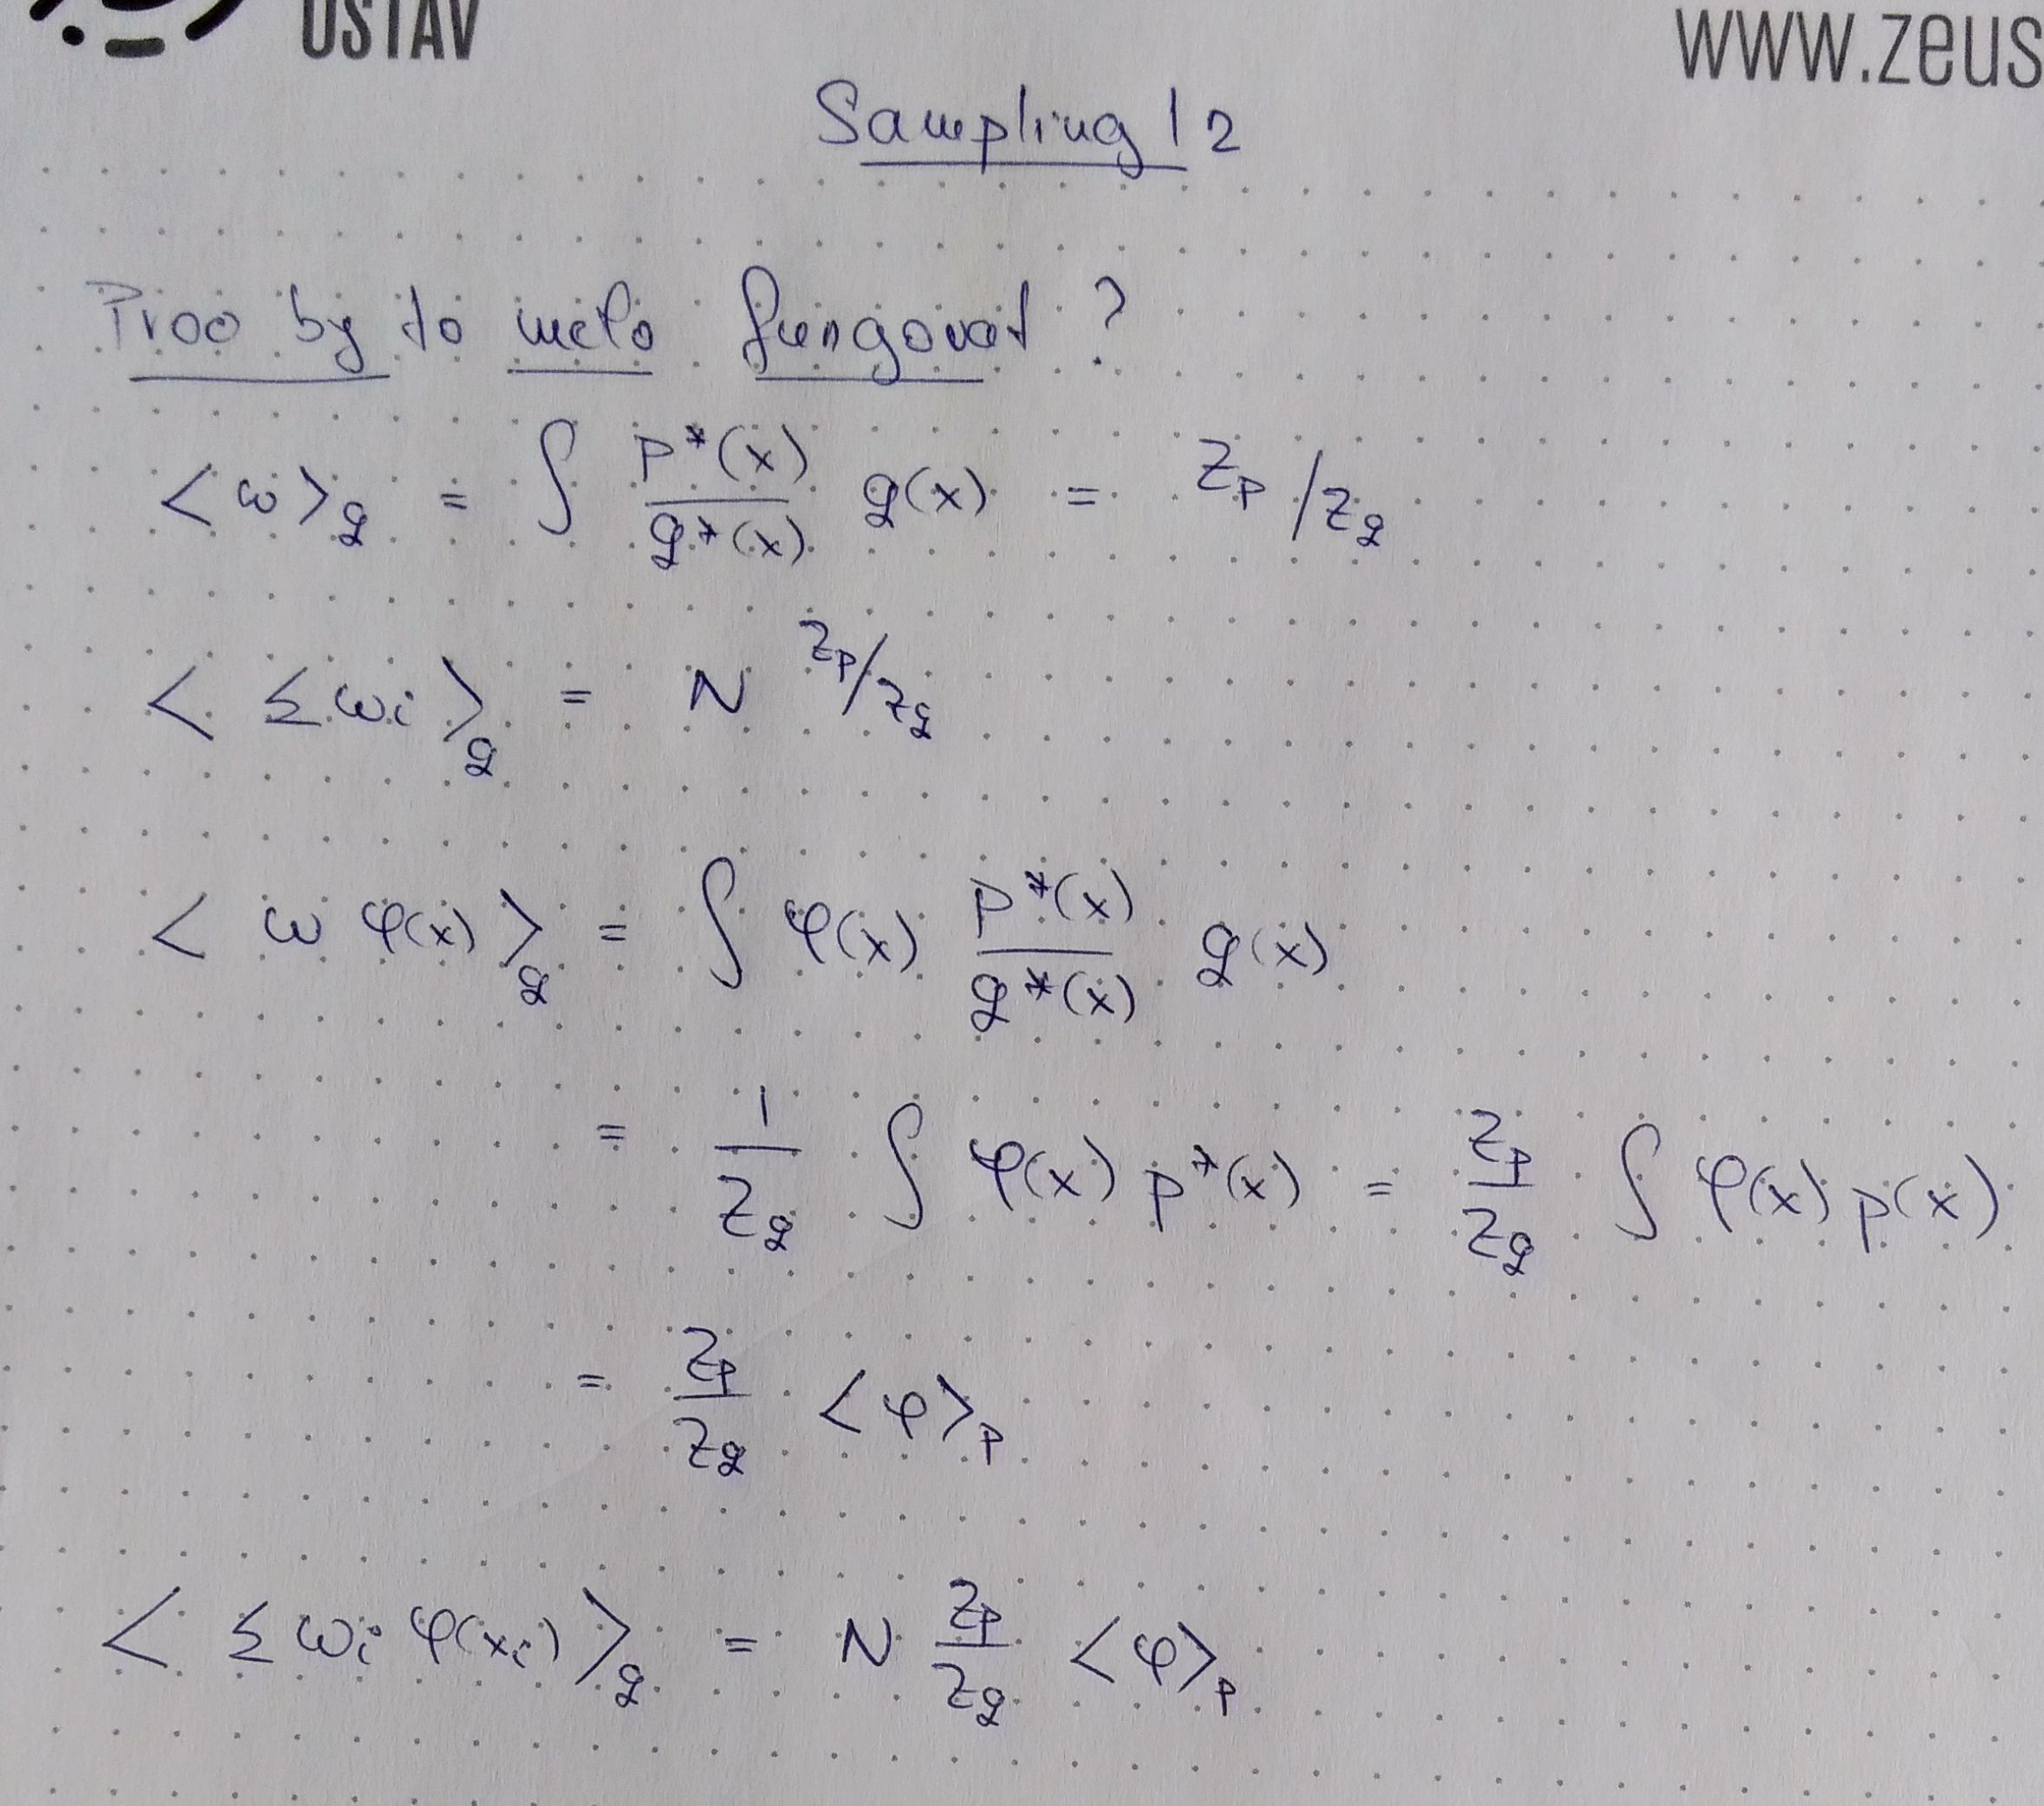 ÚSTAV
www.zeus
Sampling 12
Proč by to mělo fungovat?
<ω>_g = ∫ p*(x)/g*(x) g(x) = Z_p/Z_g
<Σ ω_i>_g = N Z_p/Z_g
<ω φ(x)>_g = ∫ φ(x) p*(x)/g*(x) g(x)
= 1/Z_g ∫ φ(x) p*(x) = Z_p/Z_g ∫ φ(x) p(x)
= Z_p/Z_g <φ>_p
<Σ ω_i φ(x_i)>_g = N Z_p/Z_g <φ>_p